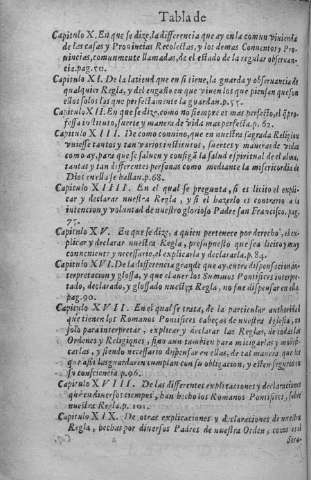 Tabla de
Capitulo X. En que se dize, la differencia que ay en la comun viuienda
de las casas y Prouincias Recolectas, y los demas Conuentos y Pro-
uincias, comunmente llamadas, de el estado de la regular obseruan-
cia. pag.
Capitulo XI. De la latitud que en si tiene, la guarda y obseruancia de
qualquier Regla, y del engaño en que viuen los que piensan que son
ellos solos los que perfectamente la guardan. p. 55.
Capitulo XII. En que se dize, como no siempre es mas perfecto, el q̃ pro-
fessa instituto, suerte y manera de vida mas perfecta. p. 62.
Capitulo XIII. De como conuino, que en nuestra sagrada Religion
vuiesse tantos y tan varios institutos, suertes y maneras de vidas
como ay, para que se saluen y consigã la salud espiritual de el alma,
tantas y tan differentes personas como mediante la misericordia de
Dios en ella se hallan. p. 68.
Capitulo XIIII. En el qual se pregunta, si es licito el expli-
car y declarar nuestra Regla, y si el hazerlo es contrario a la
intencion y voluntad de nuestro glorioso Padre san Francisco. pag.
75.
Capitulo XV. En que se dize, a quien pertenece por derecho, el ex-
plicar y declarar nuestra Regla, presupuesto que sea licito y muy
conueniente y necessario, el explicarla y declararla. p. 84.
Capitulo XVI. De la differencia grande que ay entre dispensacion, in-
terpretacion y glossa, y que el auer los Sumos Pontifices interpre-
tado, declarado, y glossado nuestra Regla, no fue dispensar en ella.
pag. 90.
Capitulo XVII. En el qual se trata, de la particular authoridad
que tienen los Romanos Pontifices cabeças de nuestra Iglesia, no
solo para interpretar, explicar y declarar las Reglas, de todas las
Ordenes y Religiones, sino aun tambien para mitigarlas y modifi-
carlas, y siendo necessario dispensar en ellas, de tal manera que los
que assi las guardaren cumplan con su obligacion, y esten seguros en
su consciencia p. 96.
Capitulo XVIII. De las differentes explicaciones y declaraciones
que en diuersos tiempos, han hecho los Romanos Pontifices, sobre
nuestra Regla. p. 101.
Capitulo XIX. De otras explicaciones y declaraciones de nuestra
Regla, hechas por diuersos Padres de nuestra Orden, como es el